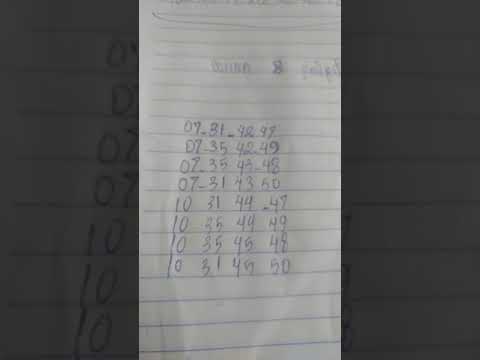 07-31-42 47
07-35 42-49
07-35 43-48
07-31 43 50
10 31 44-47
10 35 44 49
10 35 45 48
10 31 45 50